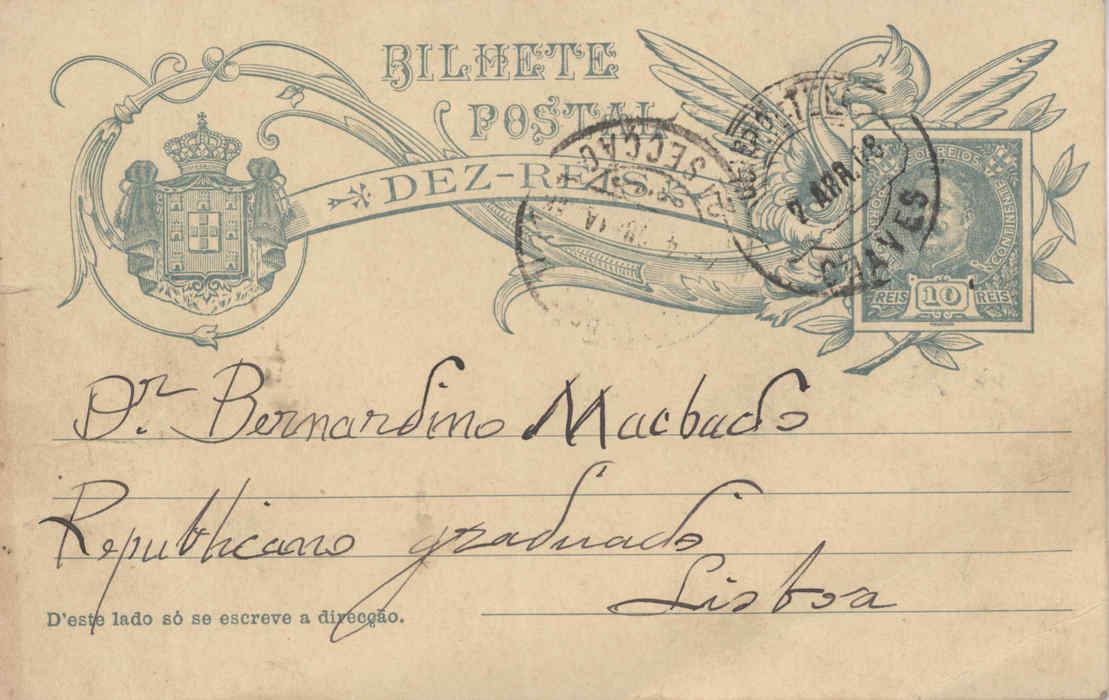 BILHETE
POSTAL
DEZ-REIS
SECÇÃO
2 ABR. 08
CHAVES
CORREIOS
CONTINENTE
REIS 10 REIS
Dr. Bernardino Machado
Republicano graduado
Lisboa
D'este lado só se escreve a direcção.